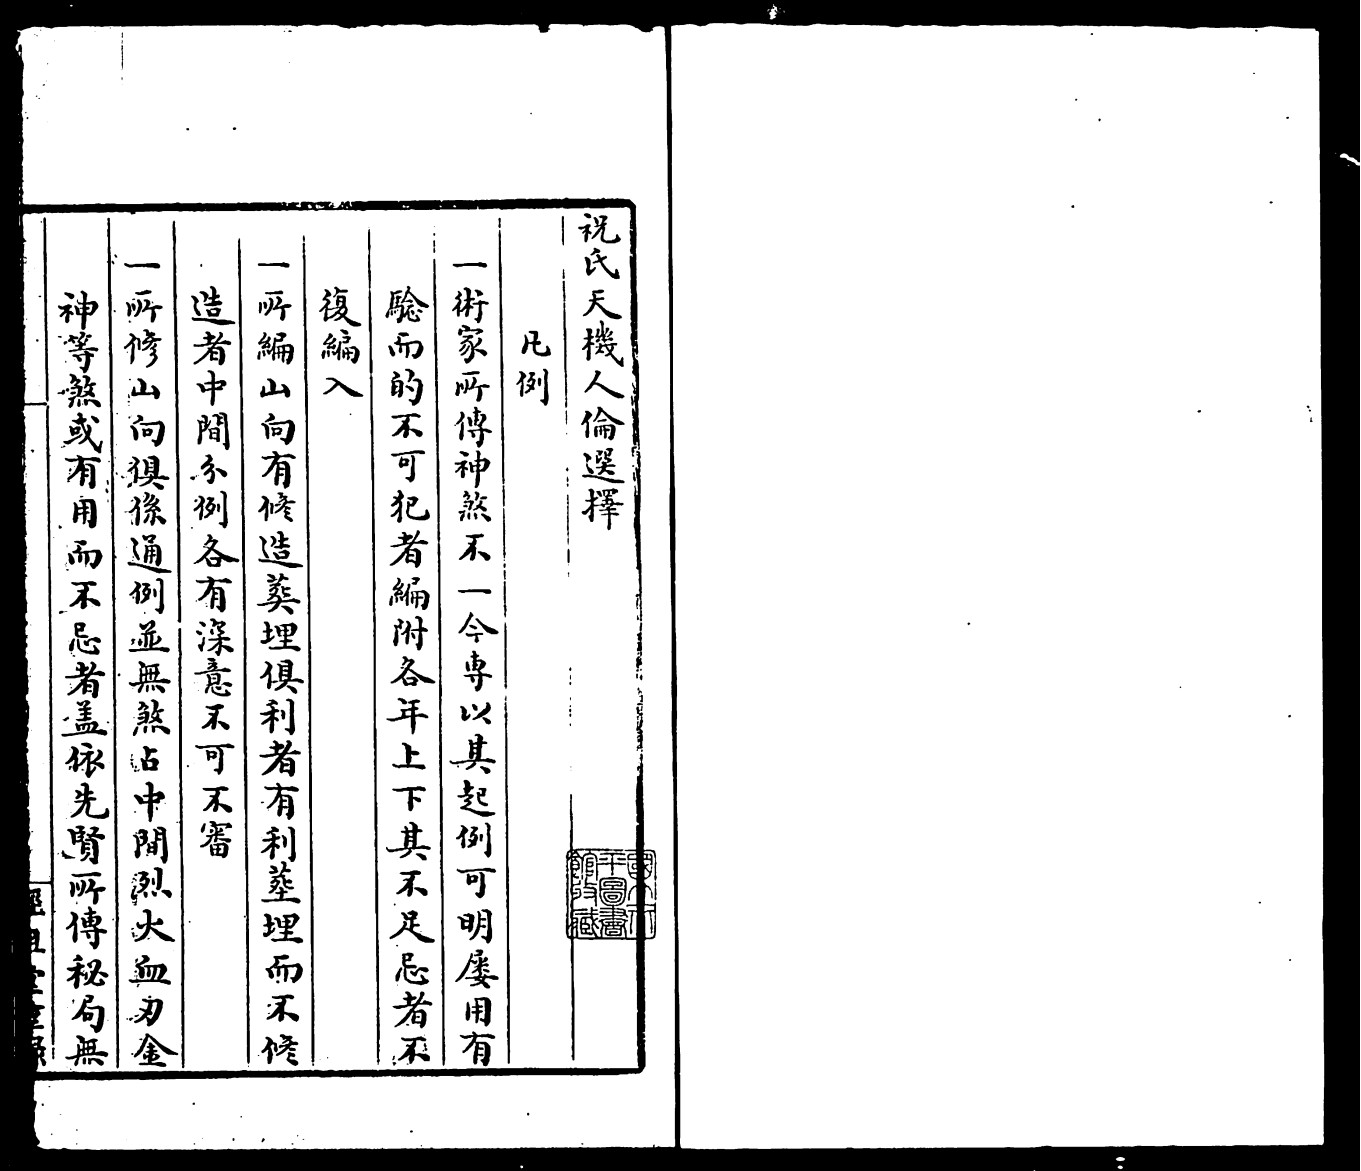 祝氏天機人倫選擇
凡例
一術家所傳神煞不一今專以其起例可明屡用有
騐而的不可犯者編附各年上下其不足忌者不
復編入
一所編山向有修造葬埋俱利者有利葬埋而不修
造者中間分例各有深意不可不審
一所修山向俱係通例並無煞占中間烈火血刃金
神等煞或有用而不忌者盖依先賢所傳秘局無
國立北
平圖書
館收藏